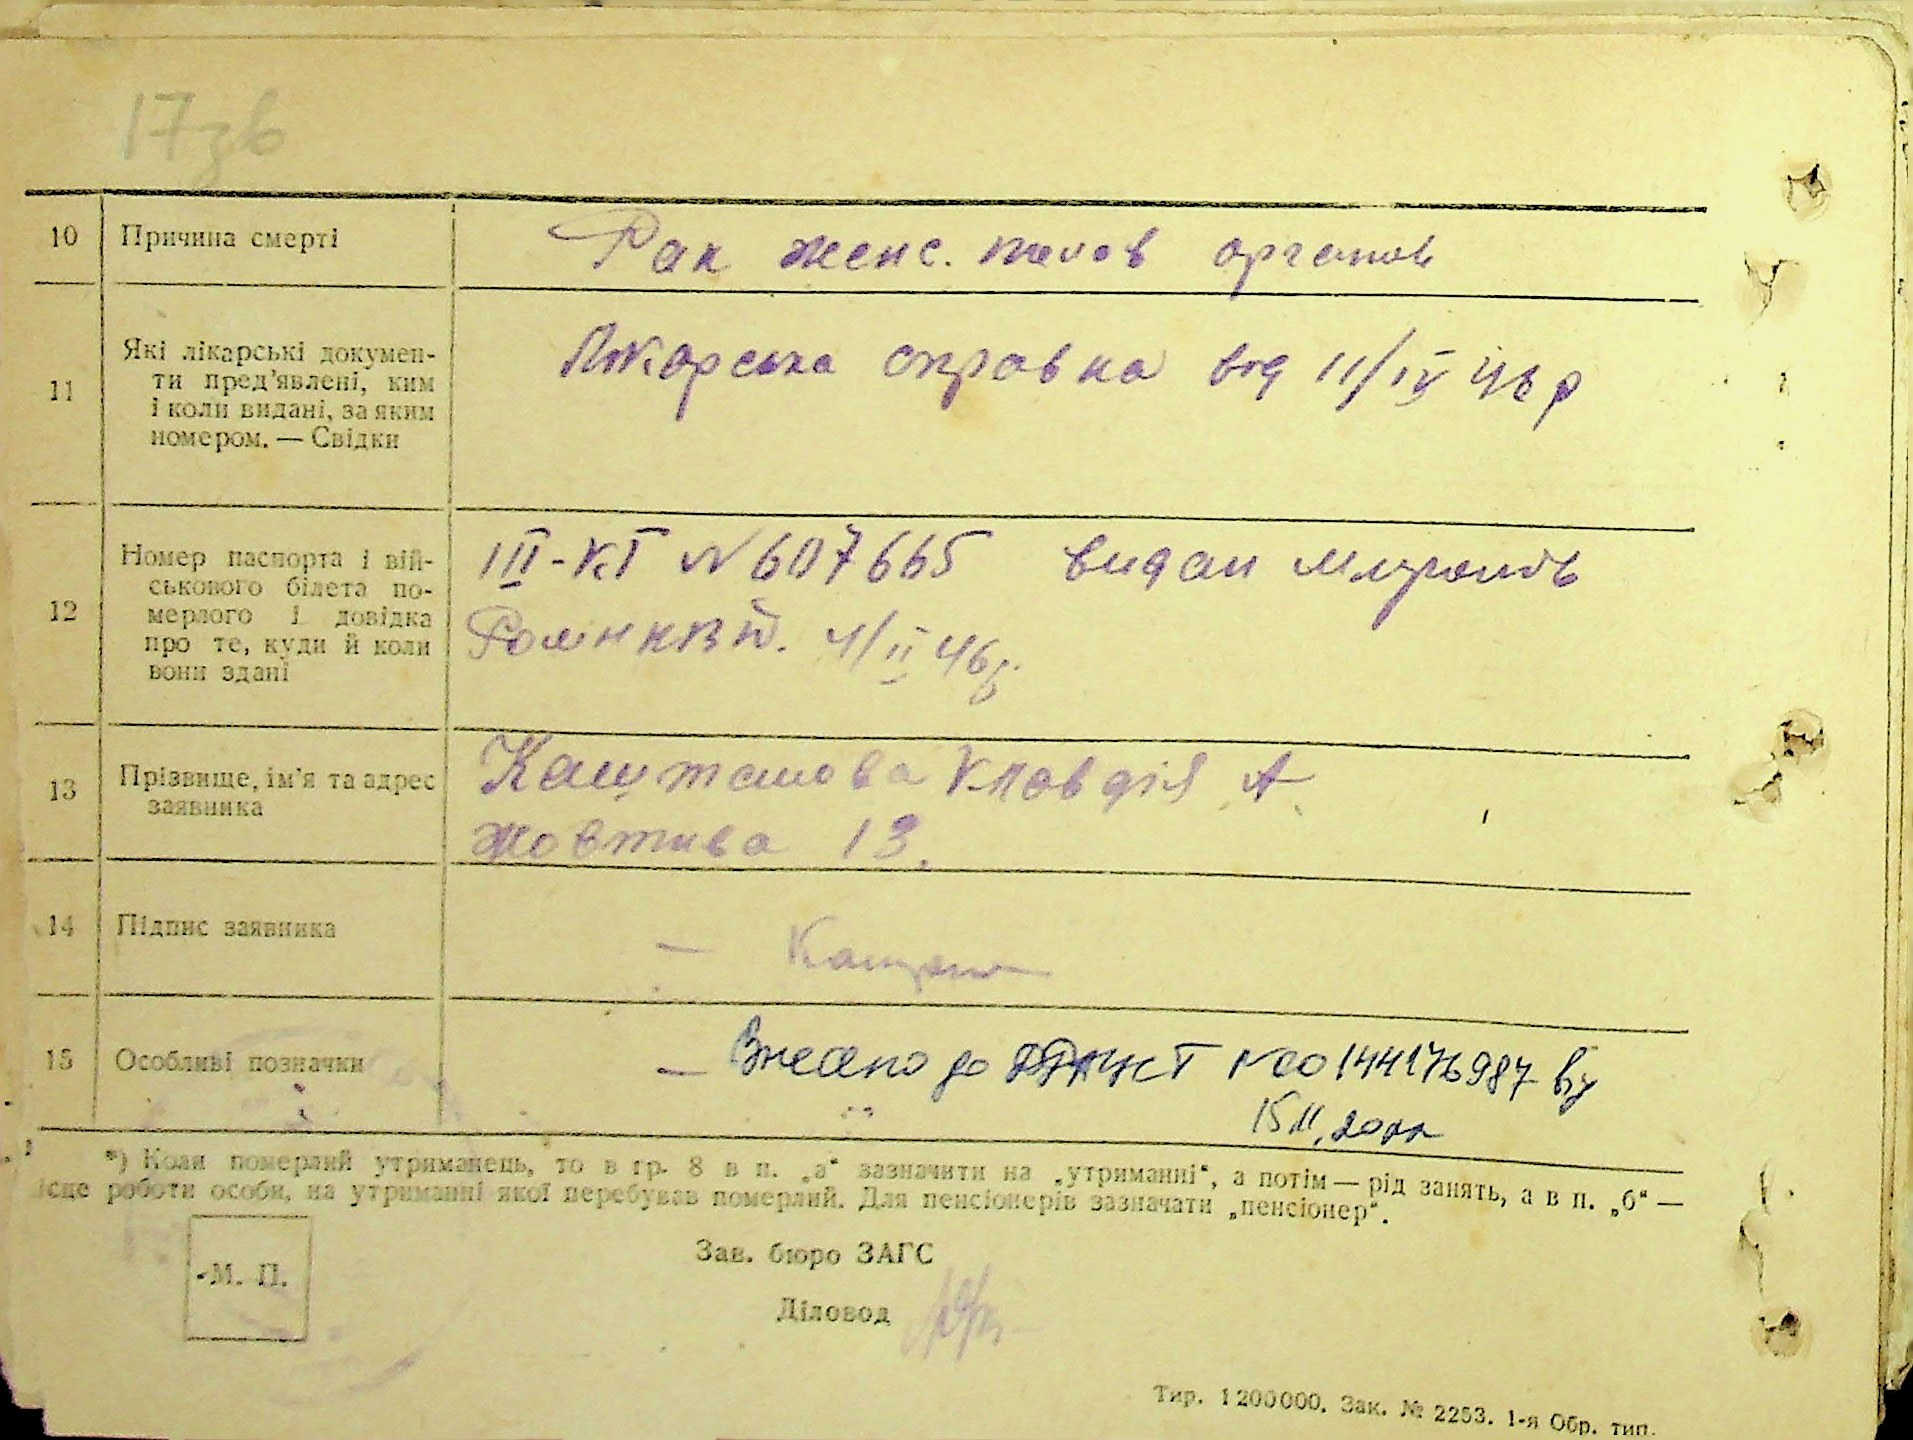 17зв
10 Причина смерті Рак женс. полов органов
11 Які лікарські докумен-
ти пред’явлені, ким
і коли видані, за яким
номером. — Свідки
Лікарська справка від 11/IV 46 р
12 Номер паспорта і вій-
ськового білета по-
мерлого і довідка
про те, куди й коли
вони здані
III-КТ N 607665 видан
4/II 46 р.
13 Прізвище, ім’я та адрес
заявника
Каштанова Клавдія А
Жовтнева 13.
14 Підпис заявника —
15 Особливі позначки — Внесено до N 00144176987 від
15.11.2022
*) Коли померлий утриманець, то в гр. 8 в п. „а“ зазначити на „утриманні“, а потім — рід занять, а в п. „б“ —
ісце роботи особи, на утриманні якої перебував померлий. Для пенсіонерів зазначати „пенсіонер“.
М. П.
Зав. бюро ЗАГС
Діловод
Тир. 1200000. Зак. № 2253. 1-я Обр. тип.